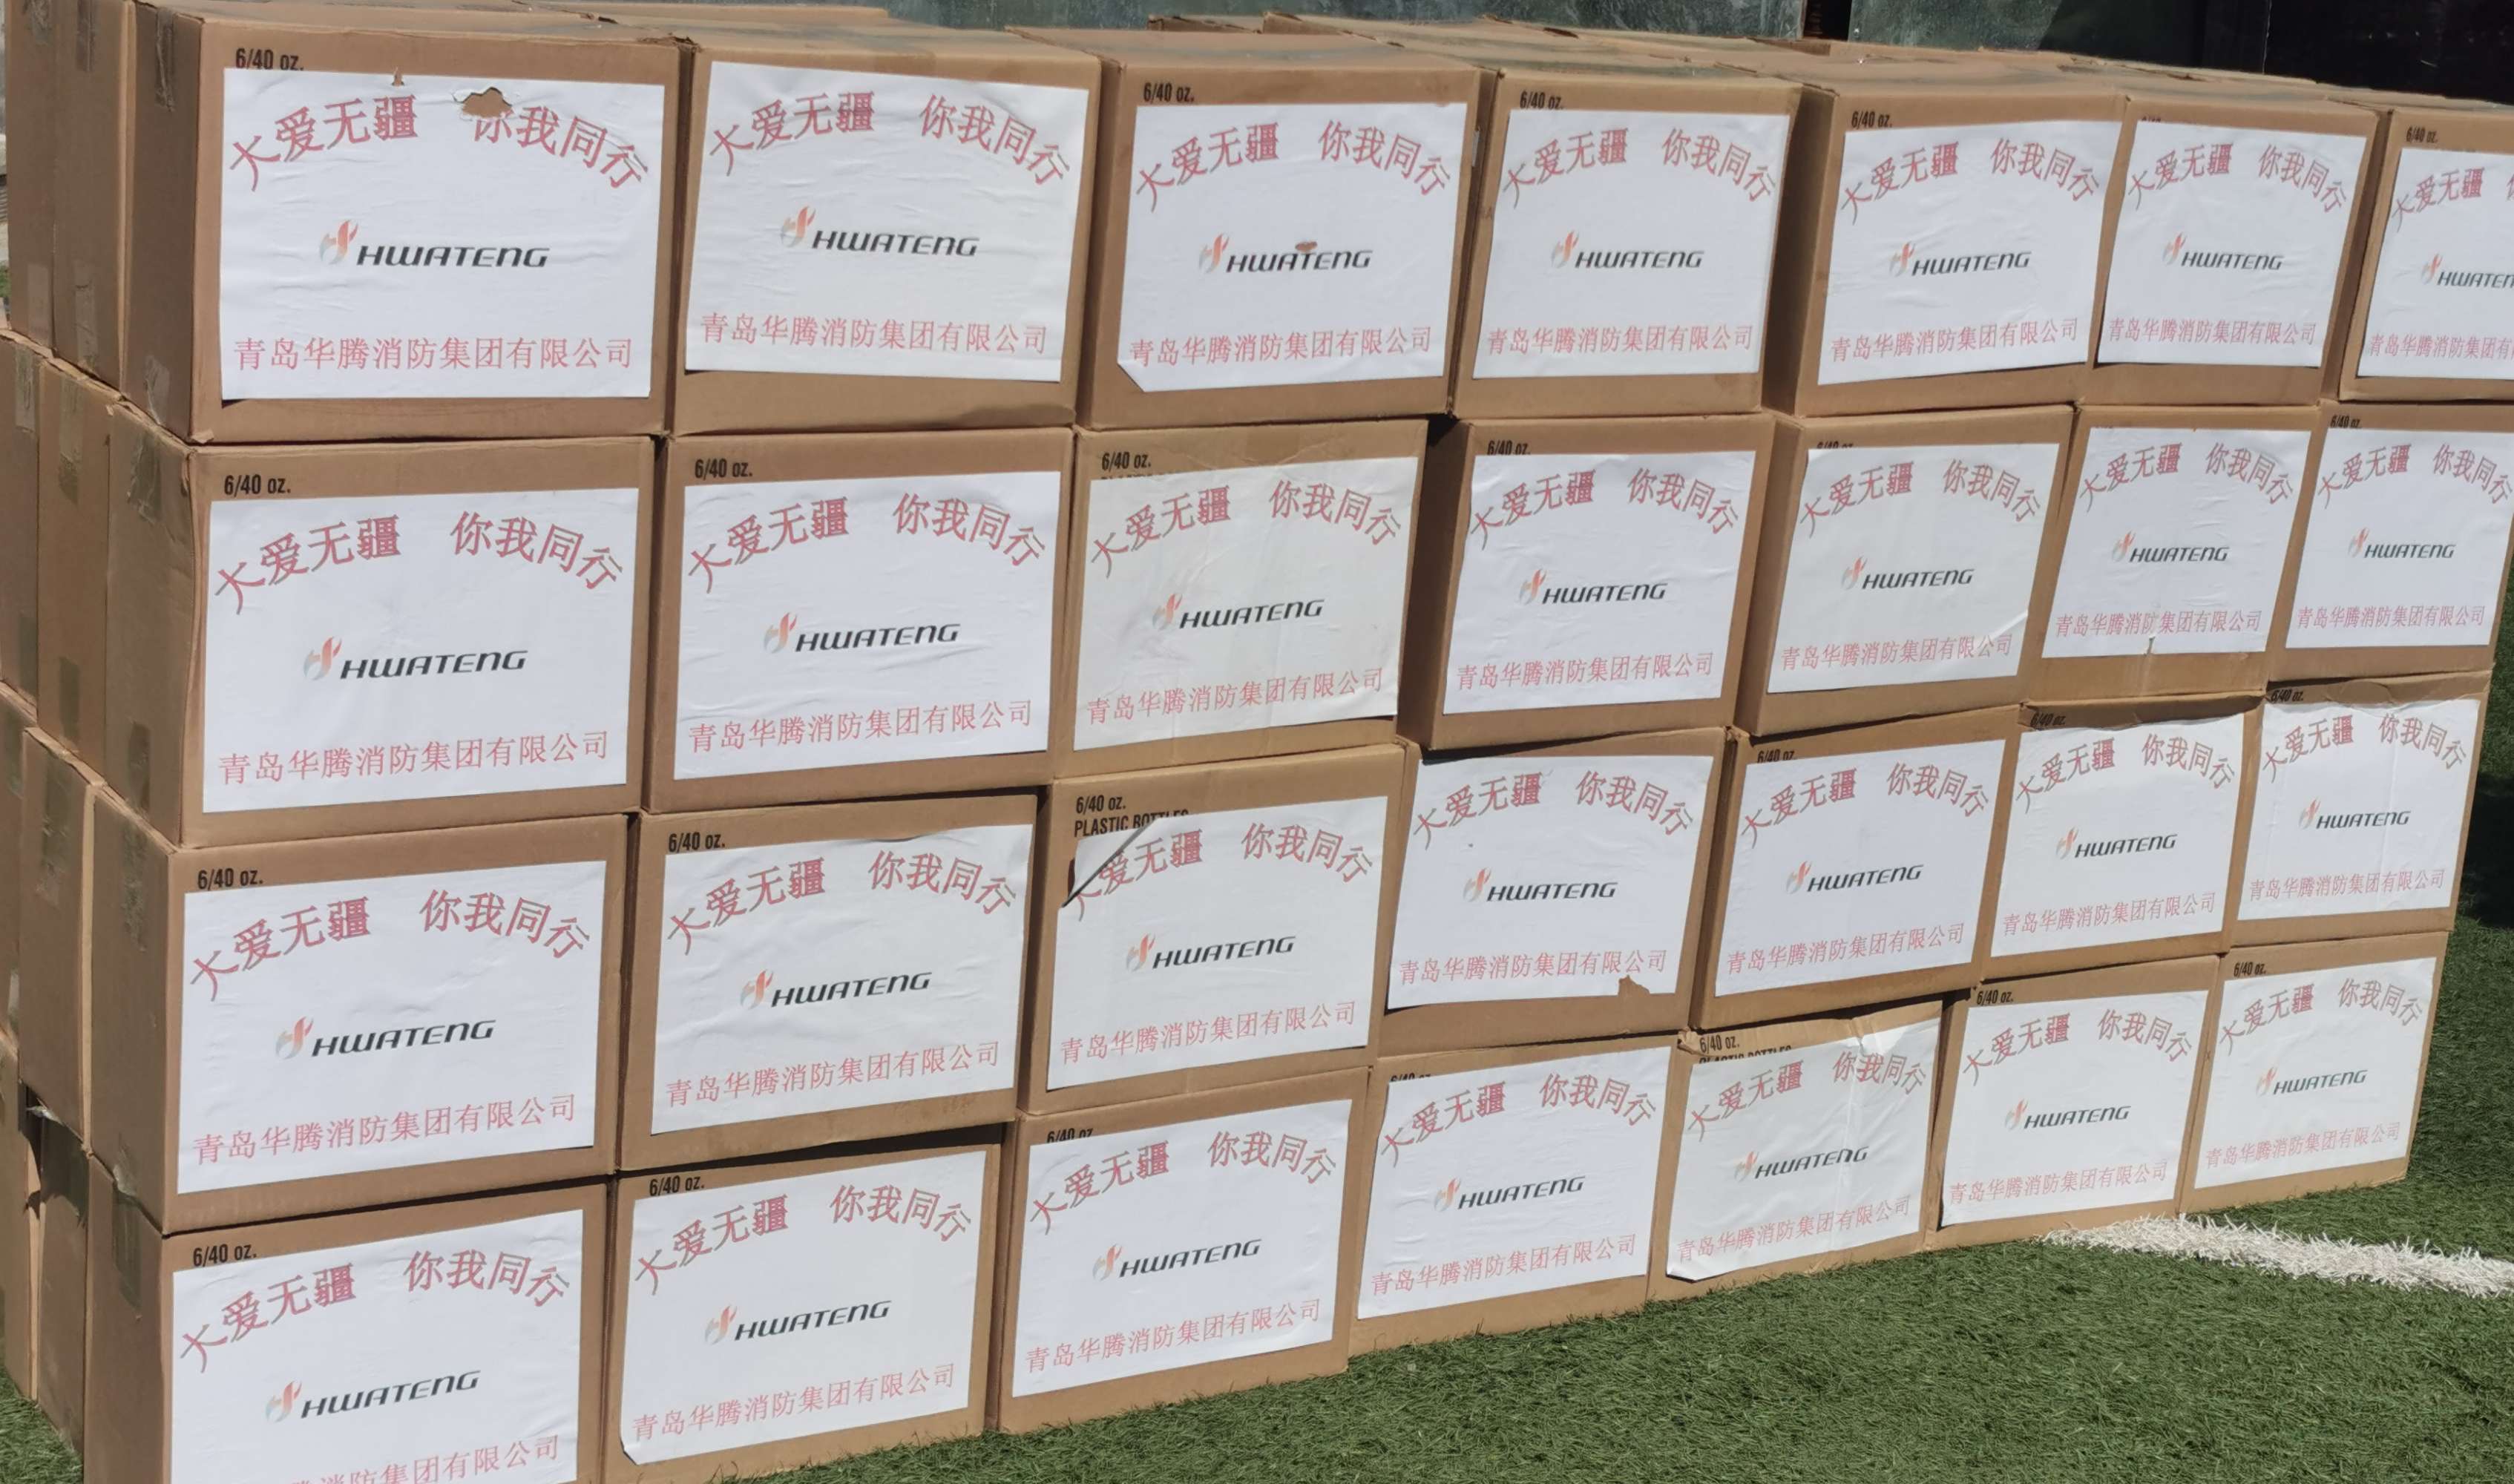 6/40 oz.
大爱无疆 你我同行
HWATENG
青岛华腾消防集团有限公司
大爱无疆 你我同行
HWATENG
青岛华腾消防集团有限公司
6/40 oz.
大爱无疆 你我同行
HWATENG
青岛华腾消防集团有限公司
6/40 oz.
大爱无疆 你我同行
HWATENG
青岛华腾消防集团有限公司
6/40 oz.
大爱无疆 你我同行
HWATENG
青岛华腾消防集团有限公司
大爱无疆 你我同行
HWATENG
青岛华腾消防集团有限公司
6/40 oz.
大爱无疆
HWATEN
青岛华腾消防集团有
6/40 oz.
大爱无疆 你我同行
HWATENG
青岛华腾消防集团有限公司
6/40 oz.
大爱无疆 你我同行
HWATENG
青岛华腾消防集团有限公司
6/40 oz.
大爱无疆 你我同行
HWATENG
青岛华腾消防集团有限公司
6/40 oz.
大爱无疆 你我同行
HWATENG
青岛华腾消防集团有限公司
大爱无疆 你我同行
HWATENG
青岛华腾消防集团有限公司
大爱无疆 你我同行
HWATENG
青岛华腾消防集团有限公司
6/40 oz.
大爱无疆 你我同行
HWATENG
青岛华腾消防集团有限公司
6/40 oz.
大爱无疆 你我同行
HWATENG
青岛华腾消防集团有限公司
6/40 oz.
大爱无疆 你我同行
HWATENG
青岛华腾消防集团有限公司
6/40 oz.
PLASTIC BOTTLES
大爱无疆 你我同行
HWATENG
青岛华腾消防集团有限公司
大爱无疆 你我同行
HWATENG
青岛华腾消防集团有限公司
6/40 oz.
大爱无疆 你我同行
HWATENG
青岛华腾消防集团有限公司
6/40 oz.
大爱无疆 你我同行
HWATENG
青岛华腾消防集团有限公司
6/40 oz.
大爱无疆 你我同行
HWATENG
青岛华腾消防集团有限公司
6/40 oz.
大爱无疆 你我同行
HWATENG
消防集团有限公司
6/40 oz.
大爱无疆 你我同行
HWATENG
青岛华腾消防集团有限公司
6/40 oz.
大爱无疆 你我同行
HWATENG
青岛华腾消防集团有限公司
大爱无疆 你我同行
HWATENG
青岛华腾消防集团有限公司
6/40 oz.
PLASTIC BOTTLES
大爱无疆 你我同行
HWATENG
青岛华腾消防集团有限公司
6/40 oz.
大爱无疆 你我同行
HWATENG
青岛华腾消防集团有限公司
6/40 oz.
大爱无疆 你我同行
HWATENG
青岛华腾消防集团有限公司